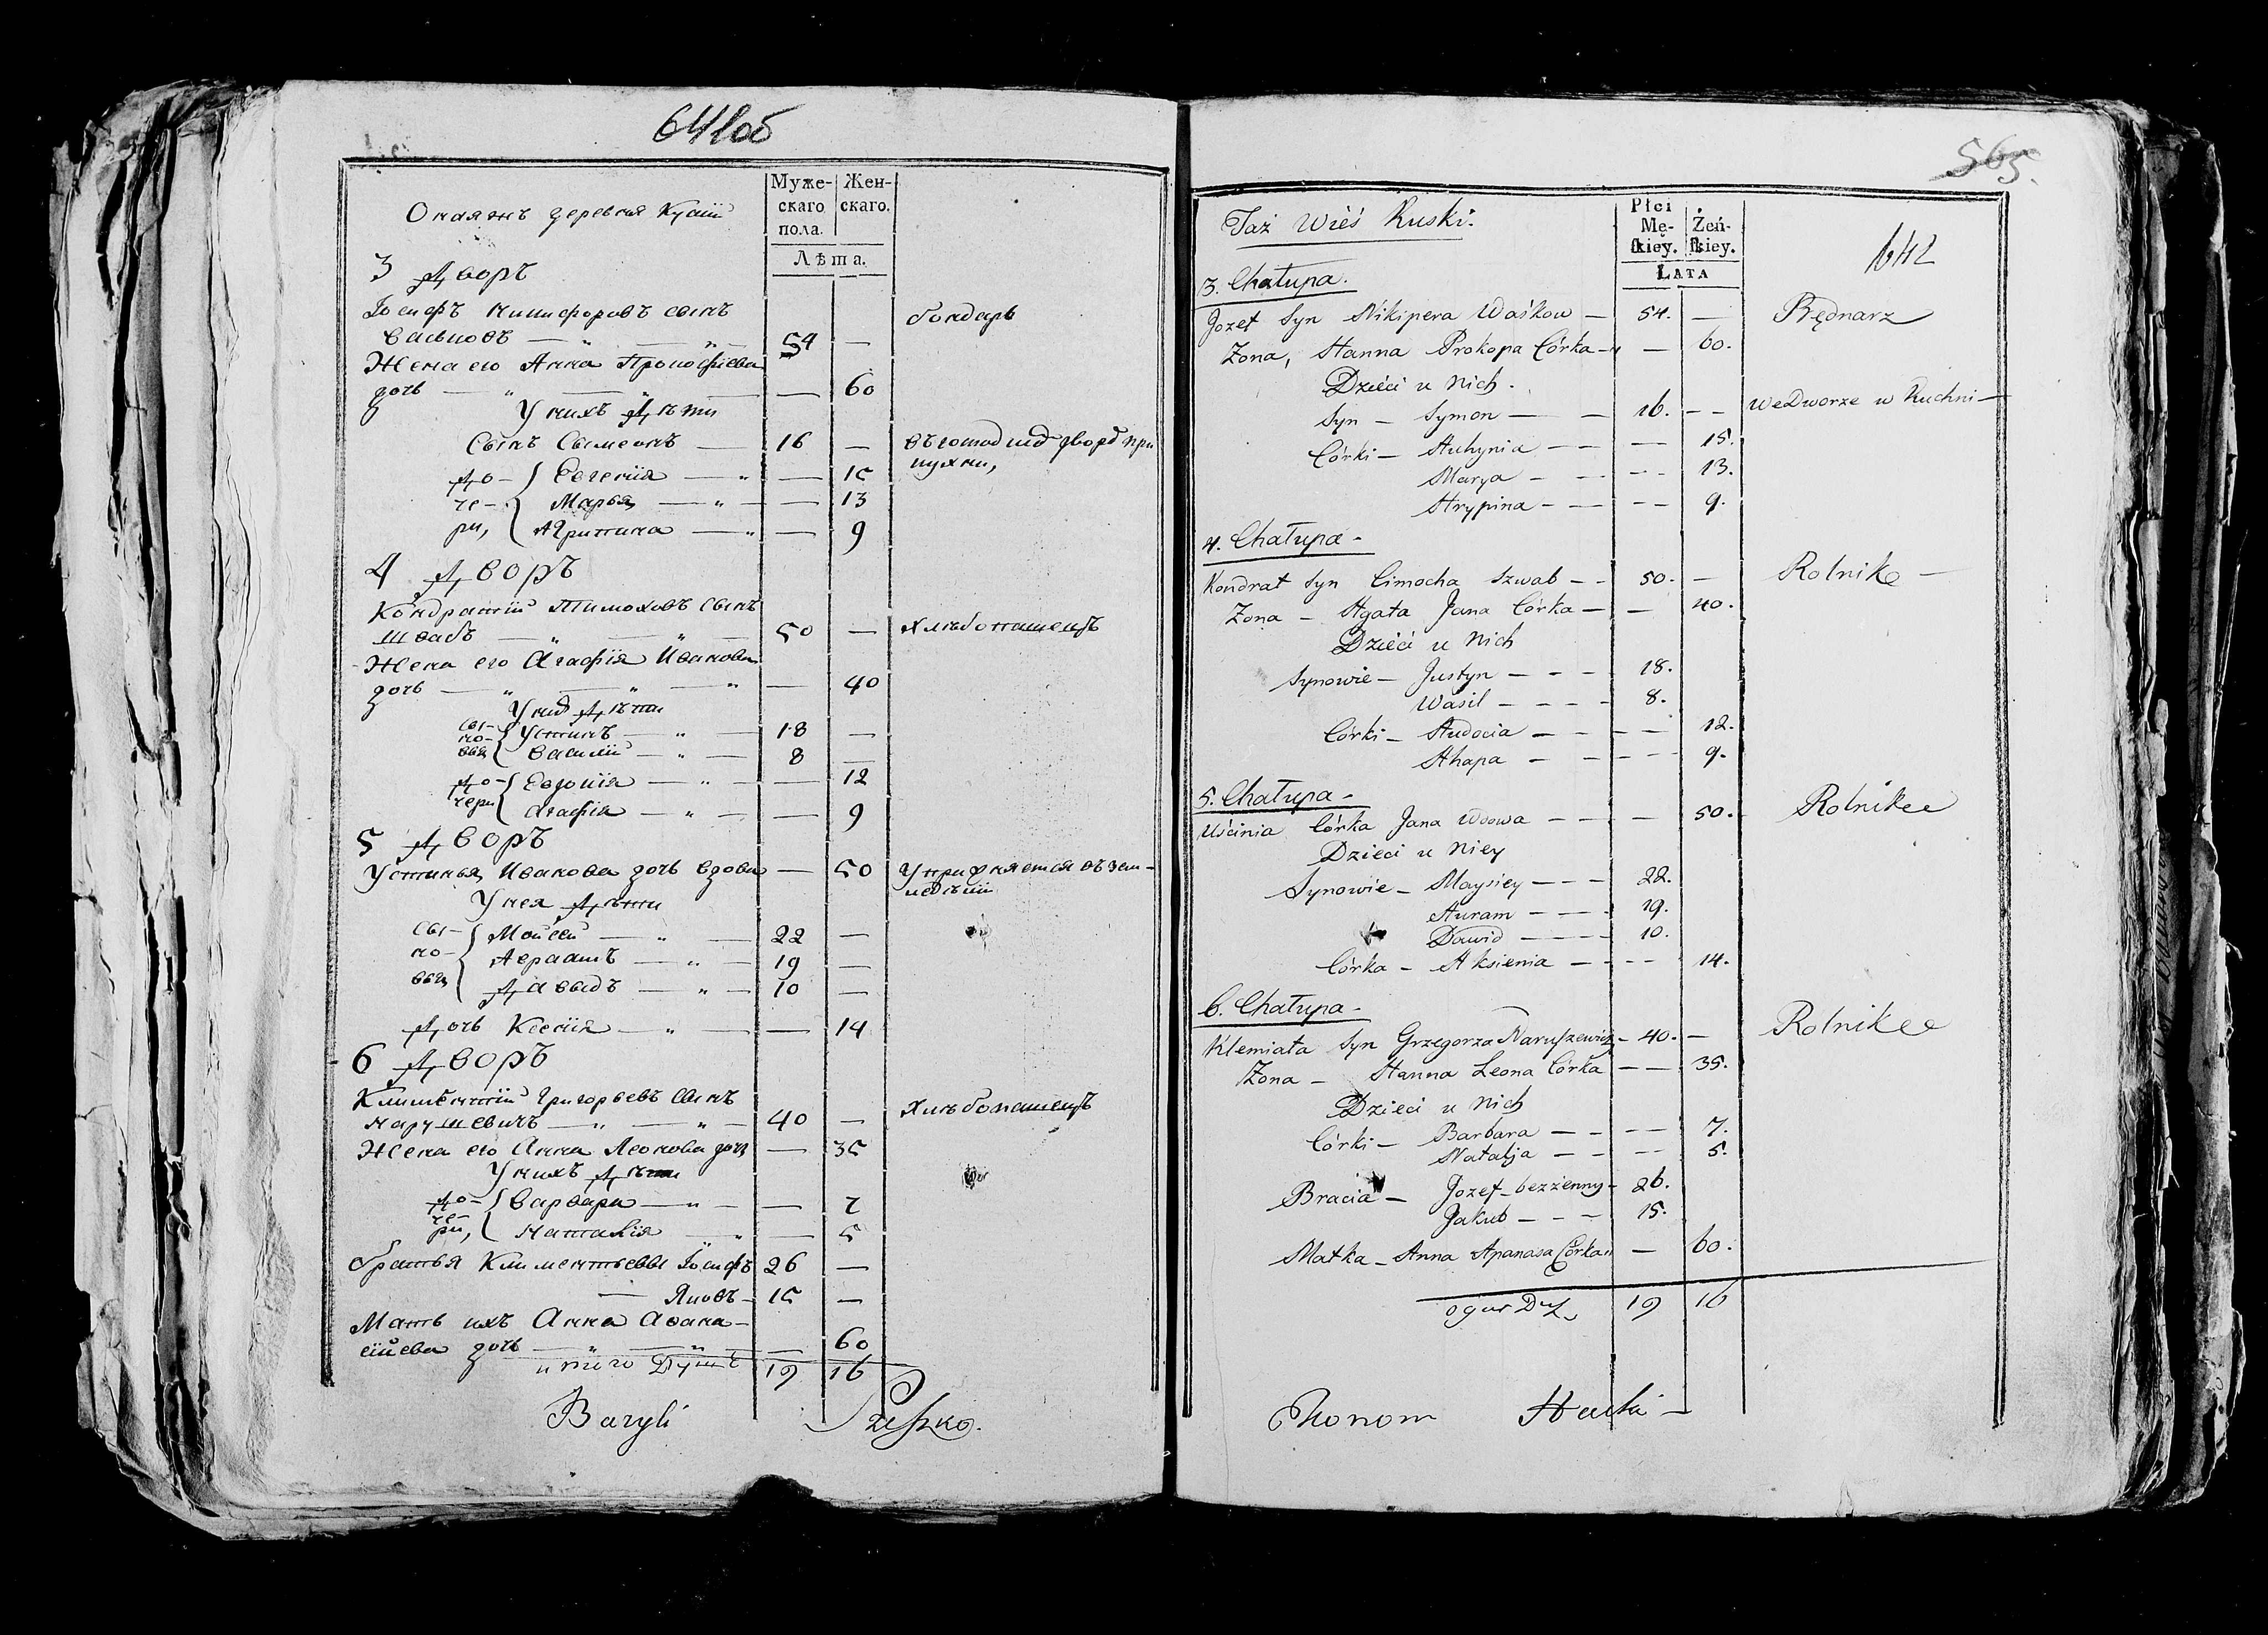 641об
Мужескаго пола. Женскаго.
Лѣта.
Онаяжъ деревня Куши
3 Дворъ
Іосифъ Никифоровъ сынъ
Васьковъ — „ — „ — 54 — бондарь
Жена его Анна Прокофіева
дочь — „ — „ — — 60
У нихъ Дѣти
Сынъ Сымеонъ — 16 — дворѣ при
До- { Евгенія — „ — — 15 кухни,
че- { Марья — „ — — 13
ри, { Агрипина — „ — 9
4 Дворъ
Кондратій Тимоховъ сынъ
Швабъ — „ — „ — 50 — Хлѣбопашецъ
Жена его Агафія Иванова
дочь — „ — „ — „ — 40
У нихъ Дѣти
Сы- { Устинъ — „ — 18 —
но-
вья { Василій — „ — 8 —
До- { Евдокія — „ — — 12
чери { Агафія — „ — — 9
5 Дворъ
Устинья Иванова дочь вдова — 50 Упражняется въ зем-
леделіи
У нея Дѣти
Сы- { Мойсей — „ — 22 —
но- { Авраамъ — „ — 19 —
вья { Давыдъ — „ — 10 —
Дочь Ксенія — „ — — 14
6 Дворъ
Климентій Григорьевъ сынъ
Нарушевичъ — „ — „ — 40 — Хлѣбопашецъ
Жена его Анна Леонова дочь — 35
У нихъ Дѣти
До- { Варвара — „ — — 7
че-
ри, { Наталія — „ — 5
братья Климентьевы Іосифъ 26 —
— Яковъ — 15 —
Мать ихъ Анна Афана-
сіева дочь — „ — „ — — 60
итого Душъ 19 16
Bazyli
565.
642
Płci Męſkiey. Żeńſkiey.
LATA
Taż Wieś Kuski.
3. Chałupa.
Jozef Syn Nikipera Waśkow — 54. — Będnarz
Zona, Hanna Prokopa Córka — — 60.
Dzieci u Nich.
Syn — Symon — — 16. — — We Dworze w Kuchni —
Córki — Auhynia — — — 15.
Marya — — — — 13.
Ahrypina — — — — 9.
4. Chałupa —
Kondrat Syn Cimocha Szwab — — 50. — Rolnik
Zona — Agata Jana Córka — — 40.
Dzieci u Nich
Synowie — Justyn — — — 18.
Wasil — — — — 8.
Córki — Audocia — — — — 12.
Ahapa — — — — 9.
5. Chałupa —
Uścinia Córka Jana Wdowa — — — 50. Rolnike
Dzieci u Niey
Synowie — Maysiey — — — 22.
Auram — — — 19.
Dawid — — — 10.
Córka — Aksienia — — — — 14.
6. Chałupa —
Klemiata Syn Grzegorza Naruſzewicz — 40. — Rolnike
Zona — Hanna Leona Córka — — 35.
Dzieci u Nich
Córki — Barbara — — — — 7.
Natalja — — — — 5.
Bracia — Jozef — bezżenny — 26.
Jakub — — — 15.
Matka — Anna Apanasa Córka — 60.
19 16
Ekonom